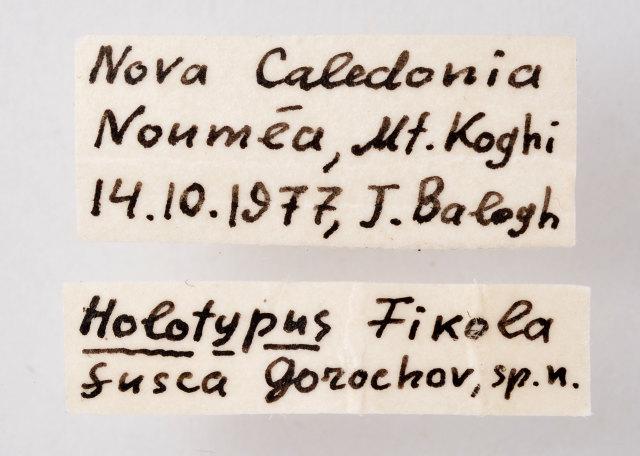 Nova Caledonia
Nouméa, Mt. Koghi
14.10.1977, J. Balogh
Holotypus Fikola
fusca Gorochov, sp. n.